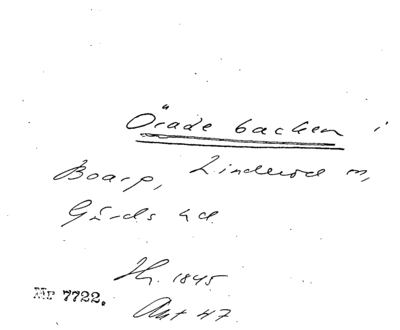 Örade backen i
Boarp, Linderöd sn,
Gärds hd.
Hg. 1845
Mr 7722.
Ant 47.